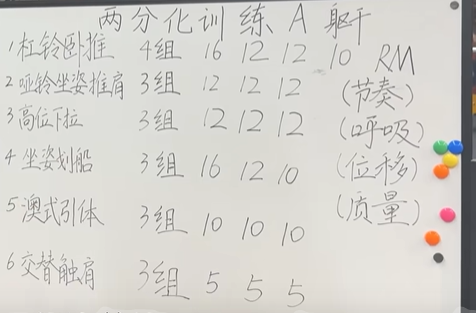 两分化训练A 躯干
1 杠铃卧推 4组 16 12 12 10 RM
2 哑铃坐姿推肩 3组 12 12 12 (节奏)
3 高位下拉 3组 12 12 12 (呼吸)
4 坐姿划船 3组 16 12 10 (位移)
5 澳式引体 3组 10 10 10 (质量)
6 交替触肩 3组 5 5 5